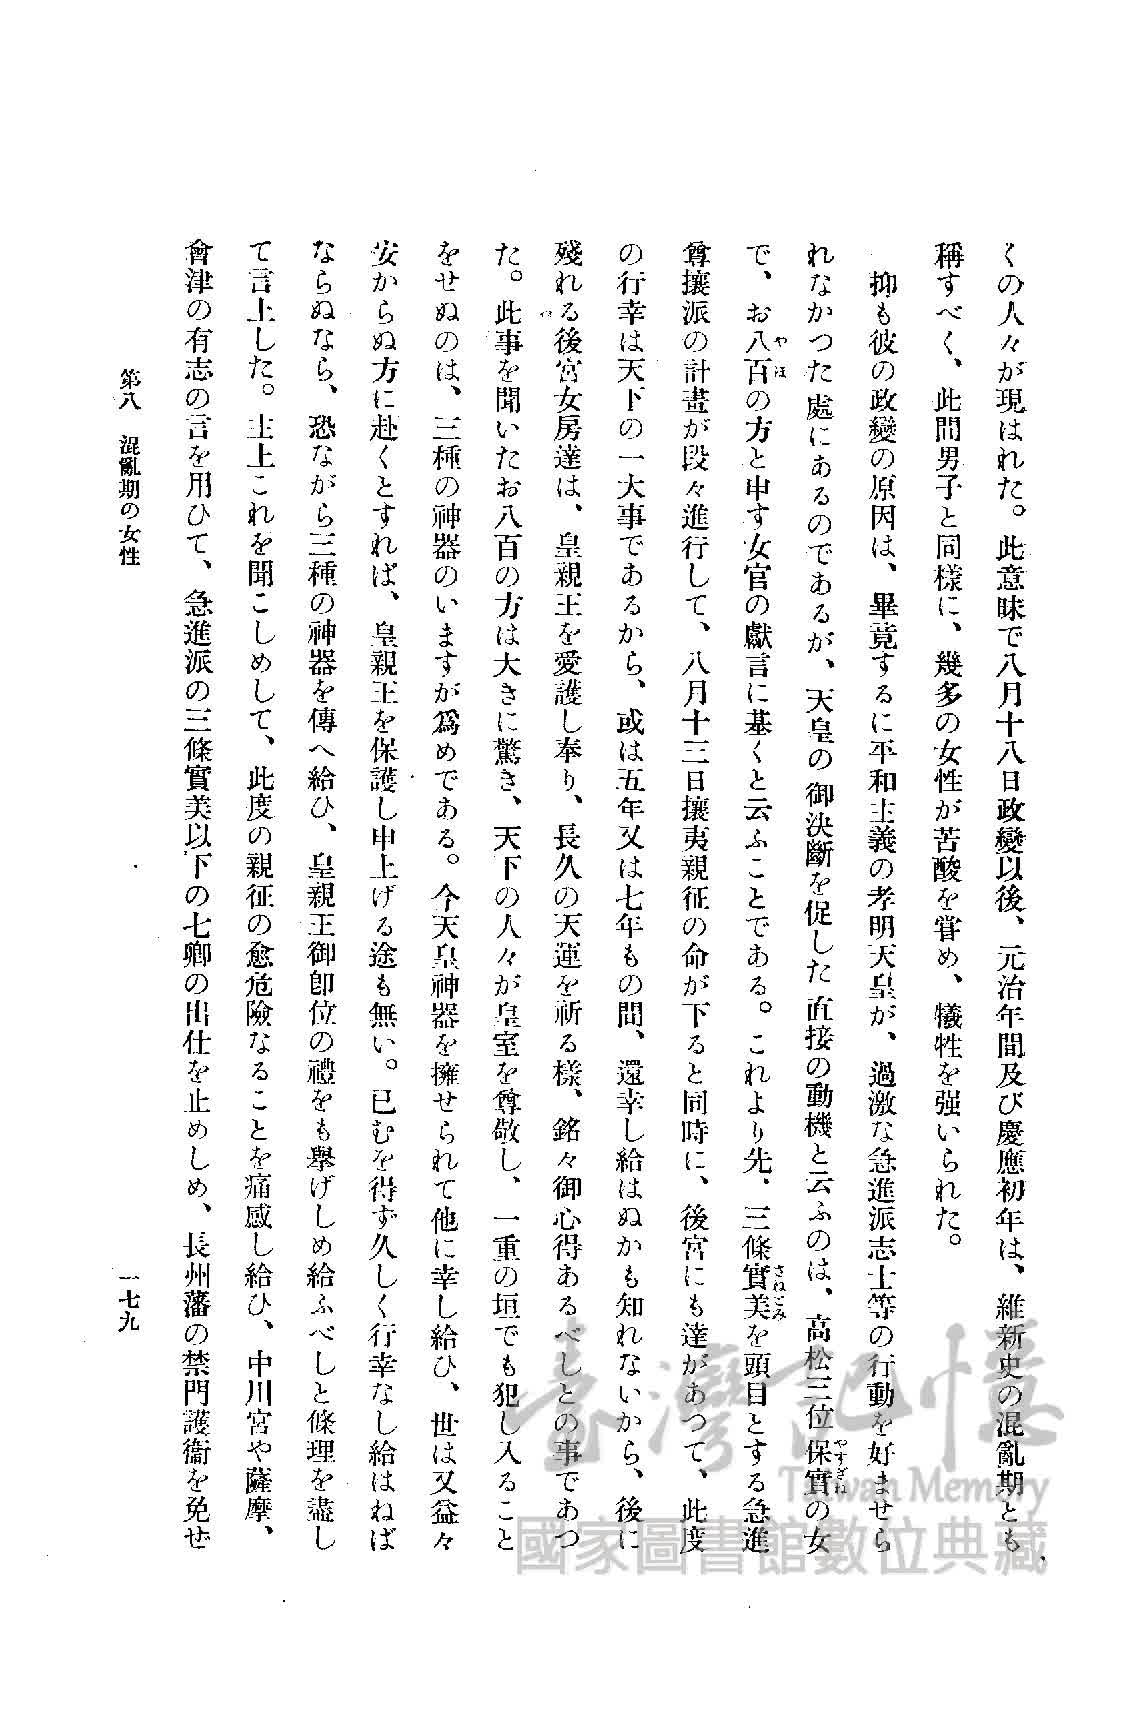 くの人々が現はれた。此意昧で八月十八日政變以後、元治年間及び慶應初年は、維新史の混亂期とも
稱すべく、此間男子と同樣に、幾多の女性が苦酸を甞め、犧牲を强いられた。
抑も彼の政變の原因は、畢竟するに平和主義の孝明天皇が、過激な急進派志士等の行動を好ませら
れなかつた處にあるのであるが、天皇の御決斷を促した直接の動機と云ふのは、高松三位保實の女
やすざね
で、お八百の方と申す女官の獻言に基くと云ふことである。これより先、三條實美を頭目とする急進
やほ
さねとみ
尊攘派の計畫が段々進行して、八月十三日攘夷親征の命が下ると同時に、後宮にも達があつて、此度
の行幸は天下の一大事であるから、或は五年又は七年もの間、還幸し給はぬかも知れないから、後に
殘れる後宮女房達は、皇親王を愛護し奉り、長久の天運を祈る樣、銘々御心得あるべしとの事であつ
た。此事を聞いたお八百の方は大きに驚き、天下の人々が皇室を尊敬し、一重の垣でも犯し入ること
をせぬのは、三種の神器のいますが爲めである。今天皇神器を擁せられて他に幸し給ひ、世は又益々
安からぬ方に赴くとすれば、皇親王を保護し申上げる途も無い。已むを得ず久しく行幸なし給はねば
ならぬなら、恐ながら三種の神器を傳へ給ひ、皇親王御卽位の禮をも擧げしめ給ふべしと條理を盡し
て言上した。主上これを聞こしめして、此度の親征の愈危險なることを痛感し給ひ、中川宮や薩摩、
會津の有志の言を用ひて、急進派の三條實美以下の七卿の出仕を止めしめ、長州藩の禁門護衞を免ぜ
第八 混亂期の女性
一七九
臺灣記憶
Taiwan Memory
國家圖書館數位典藏